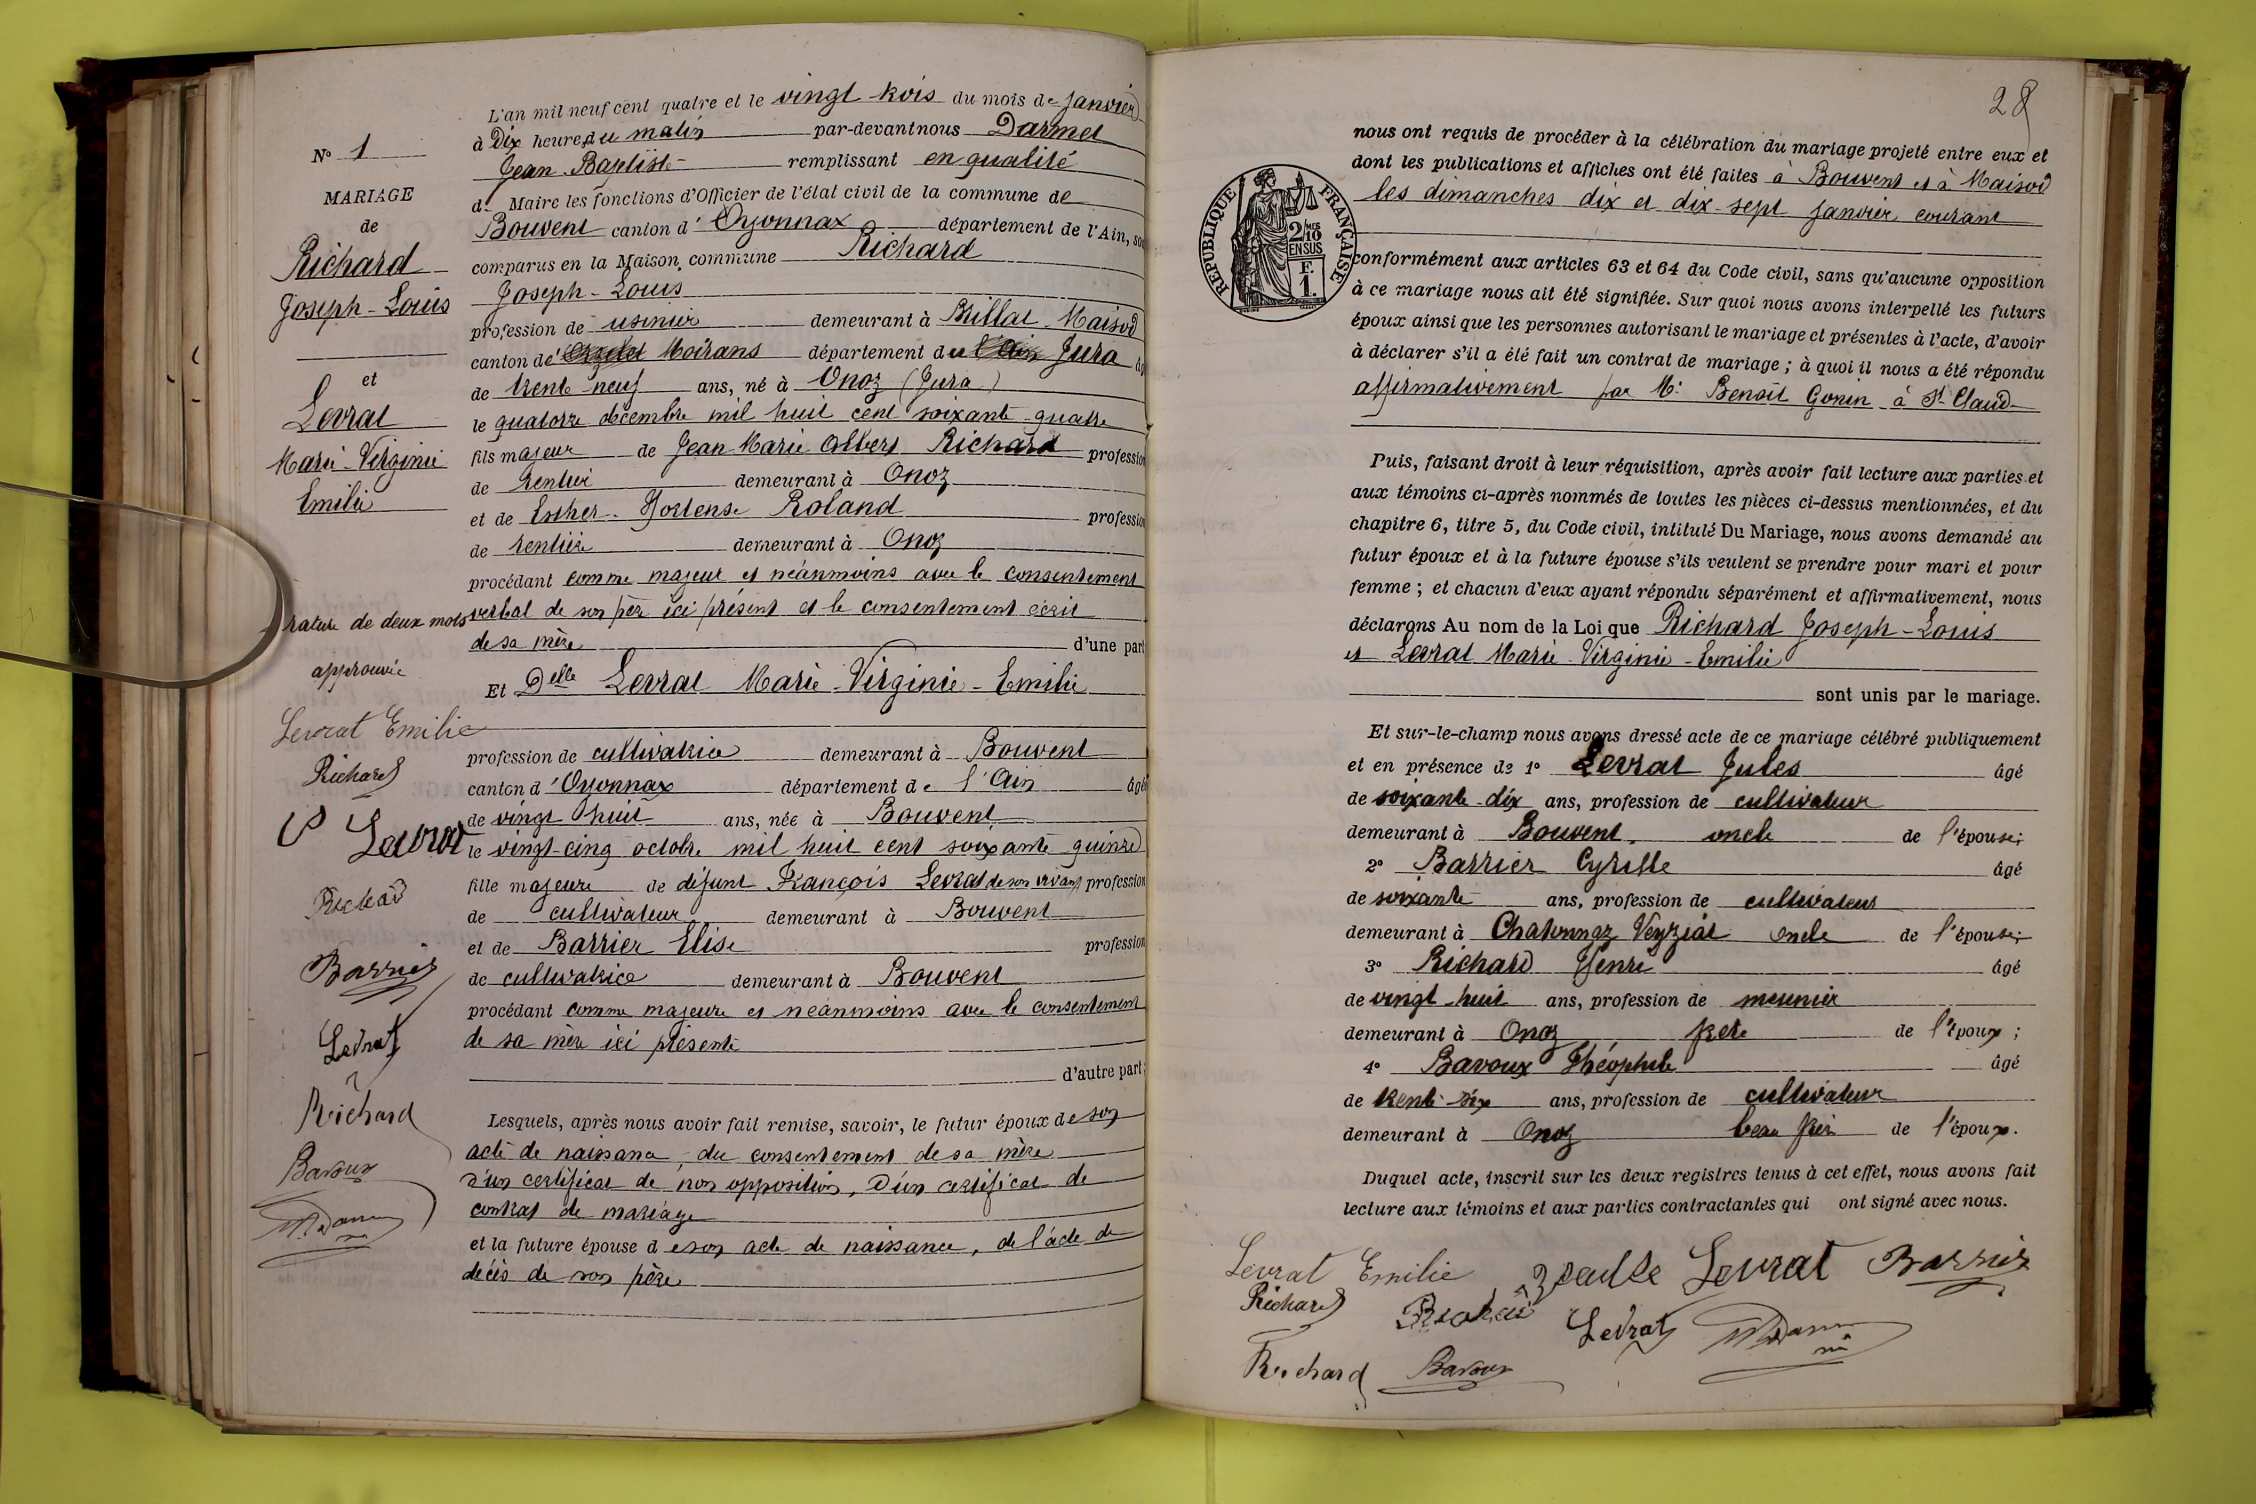 L'an mil neuf cent quatre et le vingt trois du mois de janvier
à Dix heure du matin par-devant nous Darmet
Jean Baptiste remplissant en qualité
de Maire les fonctions d'Officier de l'état civil de la commune de
Bouvent canton d'Oyonnax département de l'Ain, so
comparus en la Maison commune Richard
Joseph-Louis
profession de usinier demeurant à Brillat-Maisod
canton de Moirans département du Jura âg
de trente-neuf ans, né à Onoz (Jura)
le quatorze décembre mil huit cent soixante-quatre
fils majeur de Jean Marie Albert Richard profession
de rentier demeurant à Onoz
et de Esther-Hortense Roland profession
de rentière demeurant à Onoz
procédant comme majeur et néanmoins avec le consentement
verbal de son père ici présent et le consentement écrit
de sa mère d'une part
Et Delle Levrat Marie-Virginie-Emilie
profession de cultivatrice demeurant à Bouvent
canton d'Oyonnax département de l'Ain âgé
de vingt huit ans, née à Bouvent
le vingt-cinq octobre mil huit cent soixante quinze
fille majeure de défunt François Levrat de son vivant profession
de cultivateur demeurant à Bouvent
et de Barrier Elise profession
de cultivatrice demeurant à Bouvent
procédant comme majeure et néanmoins avec le consentement
de sa mère ici présente
d'autre part;
Lesquels, après nous avoir fait remise, savoir, le futur époux de son
acte de naissance, du consentement de sa mère
d'un certificat de non opposition, d'un certificat de
contrat de mariage
et la future épouse de son acte de naissance, de l'acte de
décès de son père
No 1
MARIAGE
de
Richard
Joseph-Louis
et
Levrat
Marie-Virginie
Emilie
rature de deux mots
approuvée
Levrat Emilie
Richard
Levrat
Richard
Barrier
Levrat
Richard
Bavoux
28
RÉPUBLIQUE FRANÇAISE
2/10 MES
EN SUS
F.
1.
nous ont requis de procéder à la célébration du mariage projeté entre eux et
dont les publications et affiches ont été faites à Bouvent et à Maisod
les dimanches dix et dix-sept janvier courant
conformément aux articles 63 et 64 du Code civil, sans qu'aucune opposition
à ce mariage nous ait été signifiée. Sur quoi nous avons interpellé les futurs
époux ainsi que les personnes autorisant le mariage et présentes à l'acte, d'avoir
à déclarer s'il a été fait un contrat de mariage; à quoi il nous a été répondu
affirmativement par Me Benoît Gonin à St Claude
Puis, faisant droit à leur réquisition, après avoir fait lecture aux parties et
aux témoins ci-après nommés de toutes les pièces ci-dessus mentionnées, et du
chapitre 6, titre 5, du Code civil, intitulé Du Mariage, nous avons demandé au
futur époux et à la future épouse s'ils veulent se prendre pour mari et pour
femme; et chacun d'eux ayant répondu séparément et affirmativement, nous
déclarons Au nom de la Loi que Richard Joseph-Louis
et Levrat Marie-Virginie-Emilie
sont unis par le mariage.
Et sur-le-champ nous avons dressé acte de ce mariage célébré publiquement
et en présence de 1° Levrat Jules âgé
de soixante-dix ans, profession de cultivateur
demeurant à Bouvent, oncle de l'épouse;
2° Barrier Cyrille âgé
de soixante ans, profession de cultivateur
demeurant à Chatonnaz Veyziat oncle de l'épouse;
3° Richard Henri âgé
de vingt-huit ans, profession de meunier
demeurant à Onoz frère de l'époux;
4° Bavoux Théophile âgé
de trente-six ans, profession de cultivateur
demeurant à Onoz beau frère de l'époux.
Duquel acte, inscrit sur les deux registres tenus à cet effet, nous avons fait
lecture aux témoins et aux parties contractantes qui ont signé avec nous.
Levrat Emilie Levrat Barrier
Richard Richard Levrat
Richard Bavoux